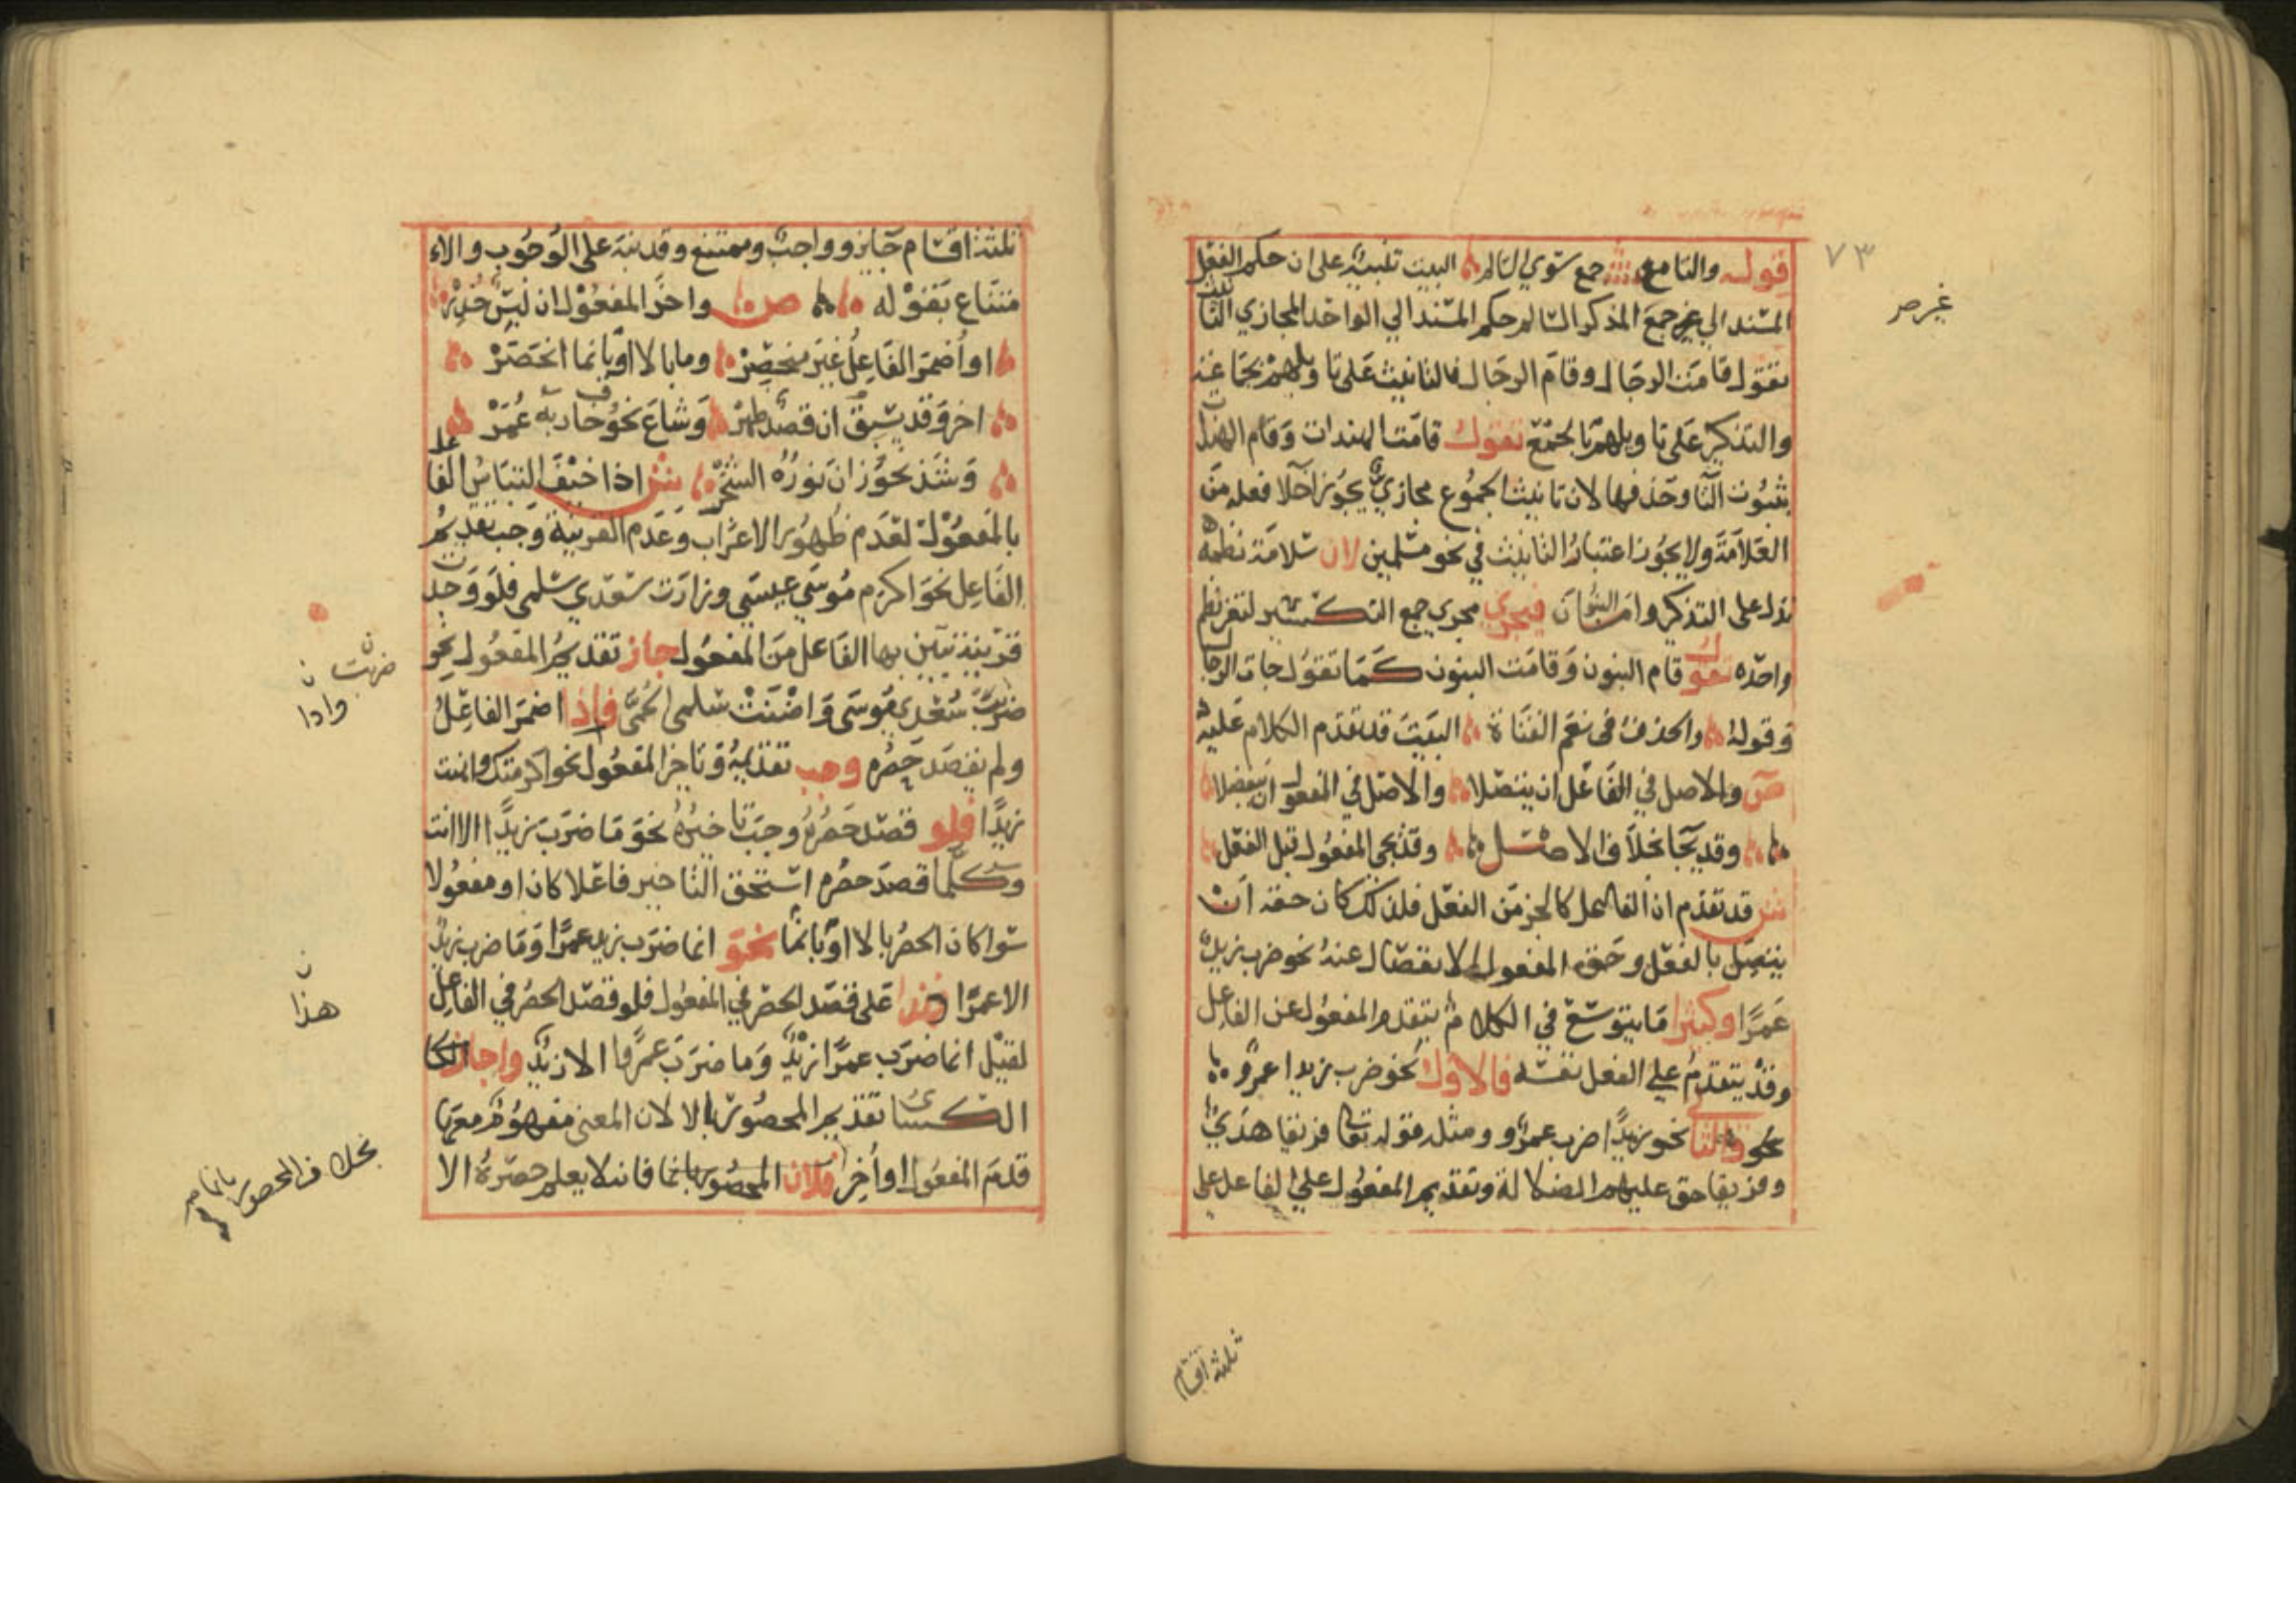 ٧٣
قوله والتا مع جمع سوي السالم البيت تنبيه على ان حكم الفعل
غير صر
المسند الي غير جمع المذكر السالم حكم المسند الي الواحد المجازي التانيث
تقول قامت الرجال وقام الرجال فالتانيث على تاويلهم بجماعة
والتذكير على تاويلهم بجمع تقول قامت الهندات وقام الهندات
بثبوت التا وحذفها لان تانيث الجموع مجازي يجوز اخلا فعله من
العلامة ولا يجوز اعتبار التانيث في نحو مسلمين لان سلامة نظمه
تدل على التذكير واما البنون فيجري مجري جمع التكسير لتغير نظم
واحده تقول قام البنون وقامت البنون كما تقول جات الرجال
وقوله والحذف في نعم الفتاة البيت قد تقدم الكلام عليه
ص والاصل في الفاعل ان يتصلا والاصل في المفعول ان ينفصلا
وقد يجا بخلاف الاصل وقد يجي المفعول قبل الفعل
ش قد تقدم ان الفاعل كالجز من الفعل فلذلك كان حقه ان
يتصل بالفعل وحق المفعول الانفصال عنه نحو ضرب زيد
عمرا وكثيرا ما يتوسع في الكلام بتقدم المفعول عن الفاعل
وقد يتقدم على الفعل نفسه فالاول نحو ضرب زيدا عمرو
نحو والثاني نحو زيدا ضرب عمرو ومثله قوله تعالى فريقا هدي
وفريقا حق عليهم الضلالة وتقديم المفعول على الفاعل على
ثلثة اقسام
ثلثة اقسام جايز وواجب وممتنع وقد نبه على الوجوب والا
متناع بقوله ص واخر المفعول ان لبس حذر
او اضمر الفاعل غير منحصر وما بالا او بانما انحصر
اخر وقد يسبق ان قصد ظهر وشاع نحو خاف ربه عمر
وشذ نحو زان نوره الشجر ش اذا خيف التباس الفاعل
بالمفعول لعدم ظهور الاعراب وعدم القرينة وجب تقديم
الفاعل نحو اكرم موسي عيسي وزارت سعدي سلمي فلو وجدت
قرينة تبين بها الفاعل من المفعول جاز تقديم المفعول نحو
ضربت ن
ضربت سعدي موسى واضنت سلمى الحمى فاذا اضمر الفاعل
واذا
ولم يقصد حصره وجب تقديمه وتاخر المفعول نحو اكرمتك واهنت
زيدا فلو قصد حصره وجب تاخيره نحو ما ضرب زيدا الا انت
وكلما قصد حصره استحق التاخير فاعلا كان او مفعولا
سوا كان الحصر بالا او بانما نحو انما ضرب زيد عمرا وما ضرب زيد
الا عمرا هذا على قصد الحصر في المفعول فلو قصد الحصر في الفاعل
هذا ن
لقيل انما ضرب عمرا زيد وما ضرب عمرا الا زيد واجاز الكا
الكسائى تقديم المحصور بالا لان المعنى مفهوم معها
قدم المفعول او اخر فلان المحصور بانما فانه لا يعلم حصره الا
بخلاف المحصور بانما